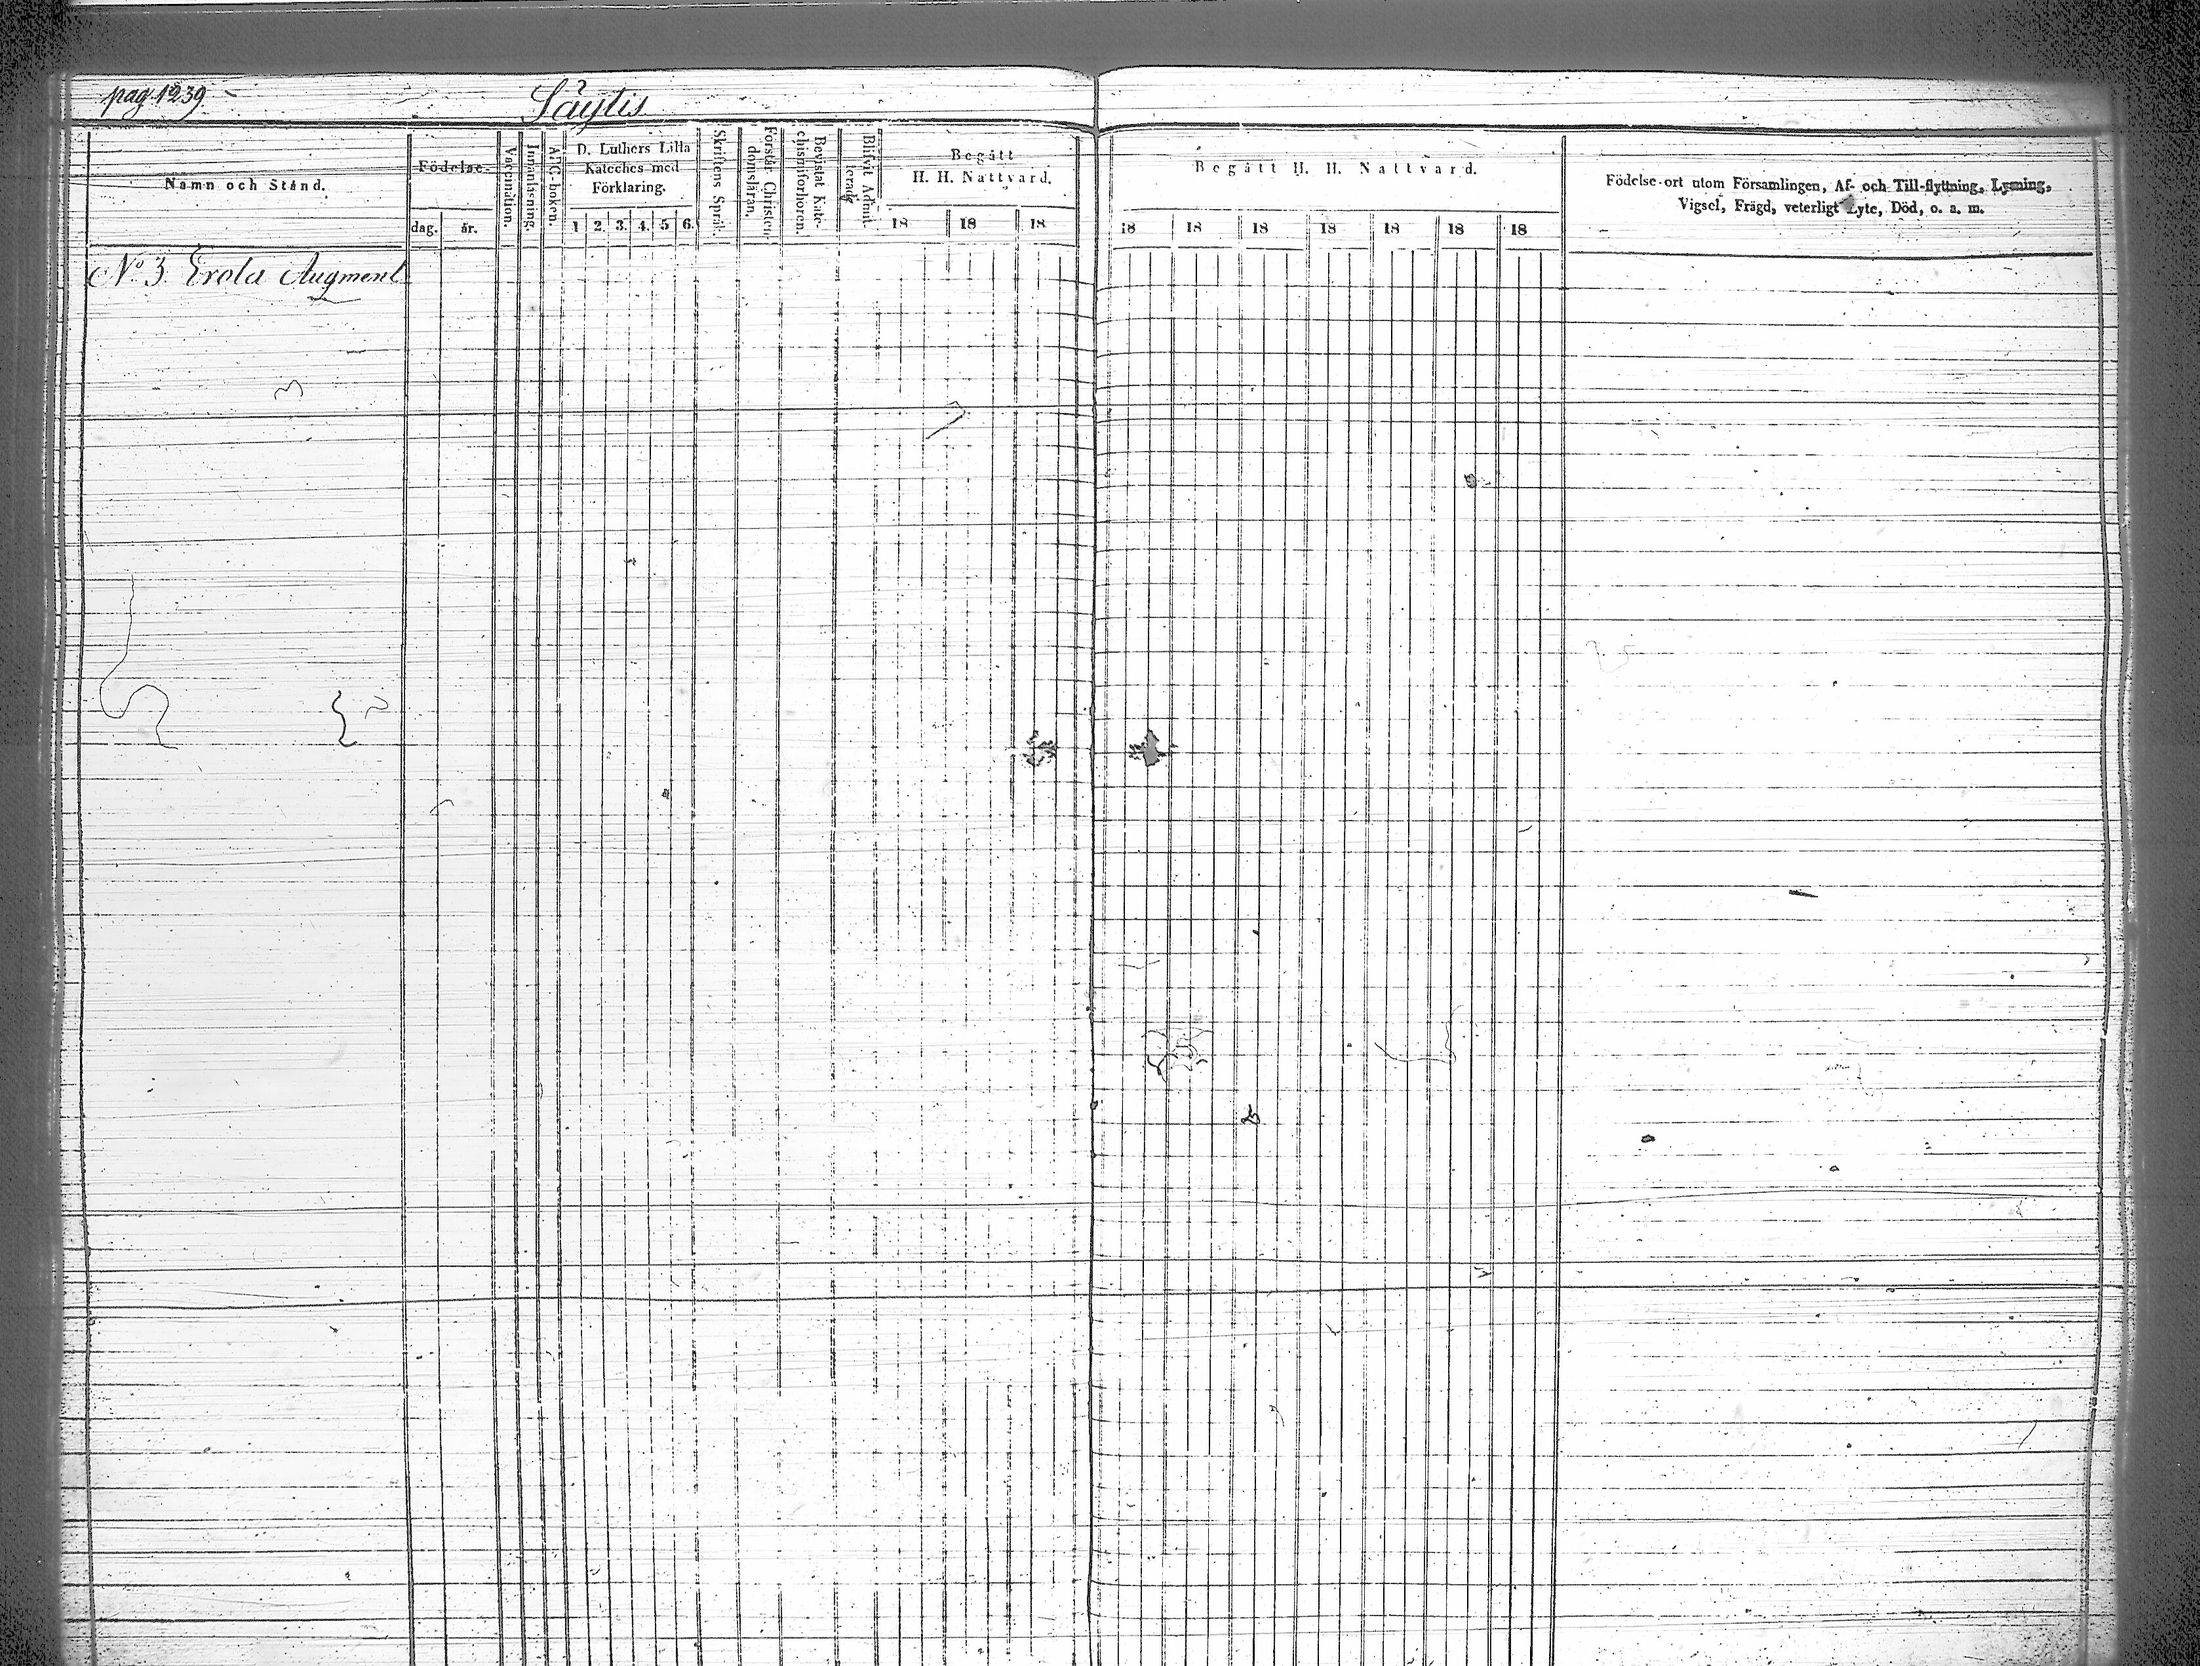 pag. 1239
Säytis
Namn och Stånd.
Födelse-
dag.
år.
Vaccination.
Innanläsning.
ABC-boken.
D. Luthers Lilla
Kateches med
Förklaring.
1 2. 3. 4. 5 6.
Skriftens Språk.
Förstår Christen-
domsläran.
Bevistat Kate-
chismiförhören.
Blifvit Admit-
terade
Begått
H. H. Nattvard.
18 18 18
Begått H. H. Nattvard.
18 18 18 18 18 18 18
Födelse-ort utom Församlingen, Af- och Till-flyttning, Lysning,
Vigsel, Frägd, veterligt Lyte, Död, o. a. m.
No 3 Erola Augment